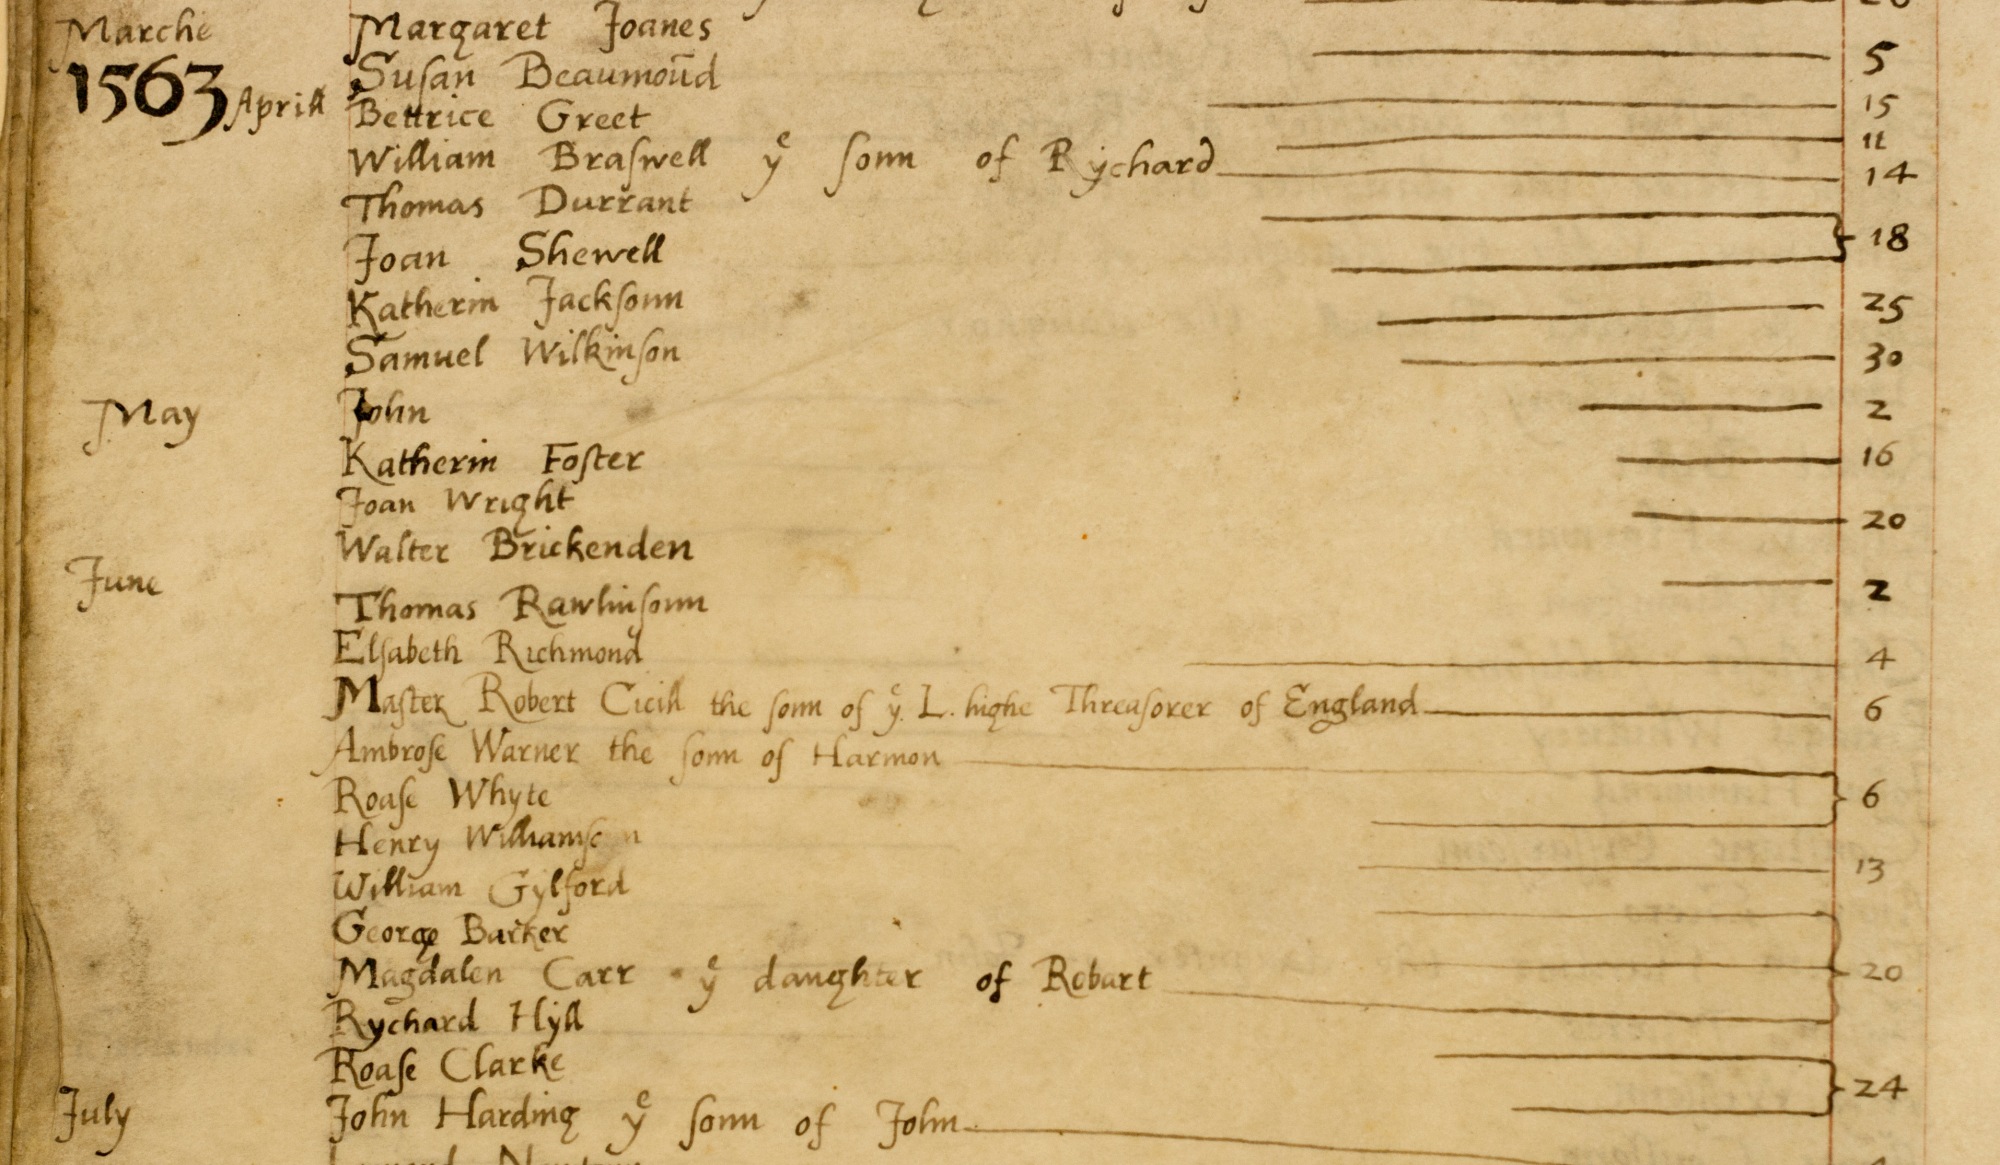 Marche Margaret Joanes 5
1563 Aprill Susan Beaumoūd 15
Bettrice Greet 11
William Braswell yᵉ sonn of Rychard 14
Thomas Durrant
Joan Shewell 18
Katherin Jacksonn 25
Samuel Wilkinson 30
May John 2
Katherin Foster 16
Joan Wright 20
Walter Brickenden
June Thomas Rawlinsonn 2
Elsabeth Richmond 4
Master Robert Cicill the sonn of yᵉ L. highe Threasorer of England 6
Ambrose Warner the sonn of Harmon
Roase Whyte 6
Henry Williamson 13
William Gylford
George Barker
Magdalen Carr yᵉ daughter of Robart 20
Rychard Hyll
Roase Clarke 24
July John Harding yᵉ sonn of John